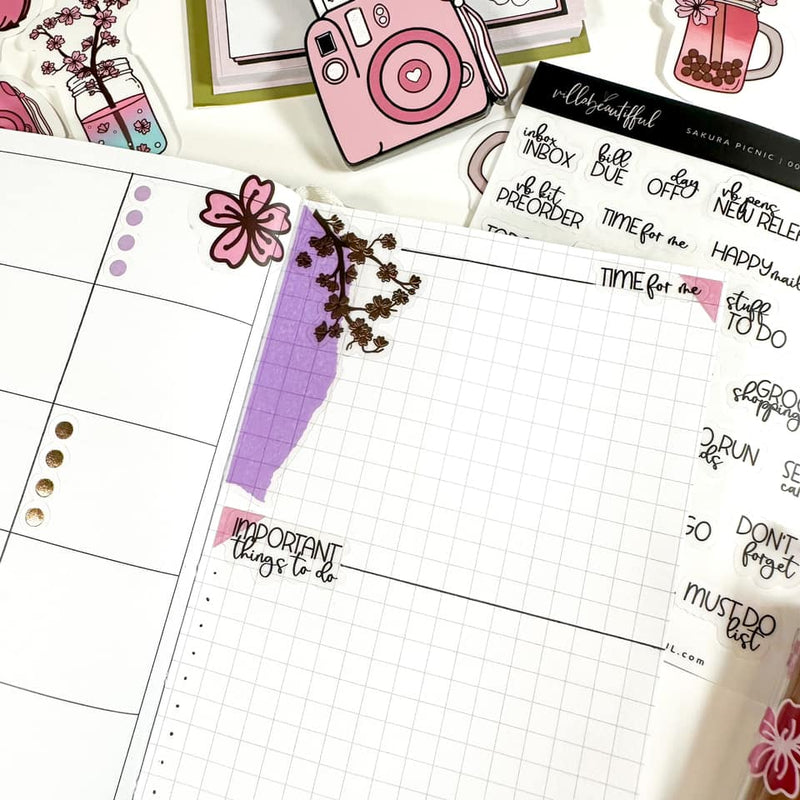 villabeautifful
SAKURA PICNIC | 00
inbox
INBOX
bill
DUE
day
OFF
vb pens
vb kit
PREORDER
TIME for me
HAPPY
mail
TIME for me
stuff
TO DO
shopping
RUN
GO
DON'T
forget
IMPORTANT
things to do
MUST DO
list
.com